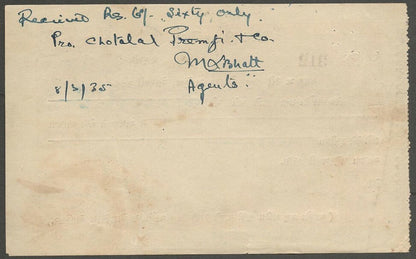 Received Rs. 60/- Sixty only.
Pro. Chotalal Premji & Co.
M L Bhatt
8/3/35 Agents.